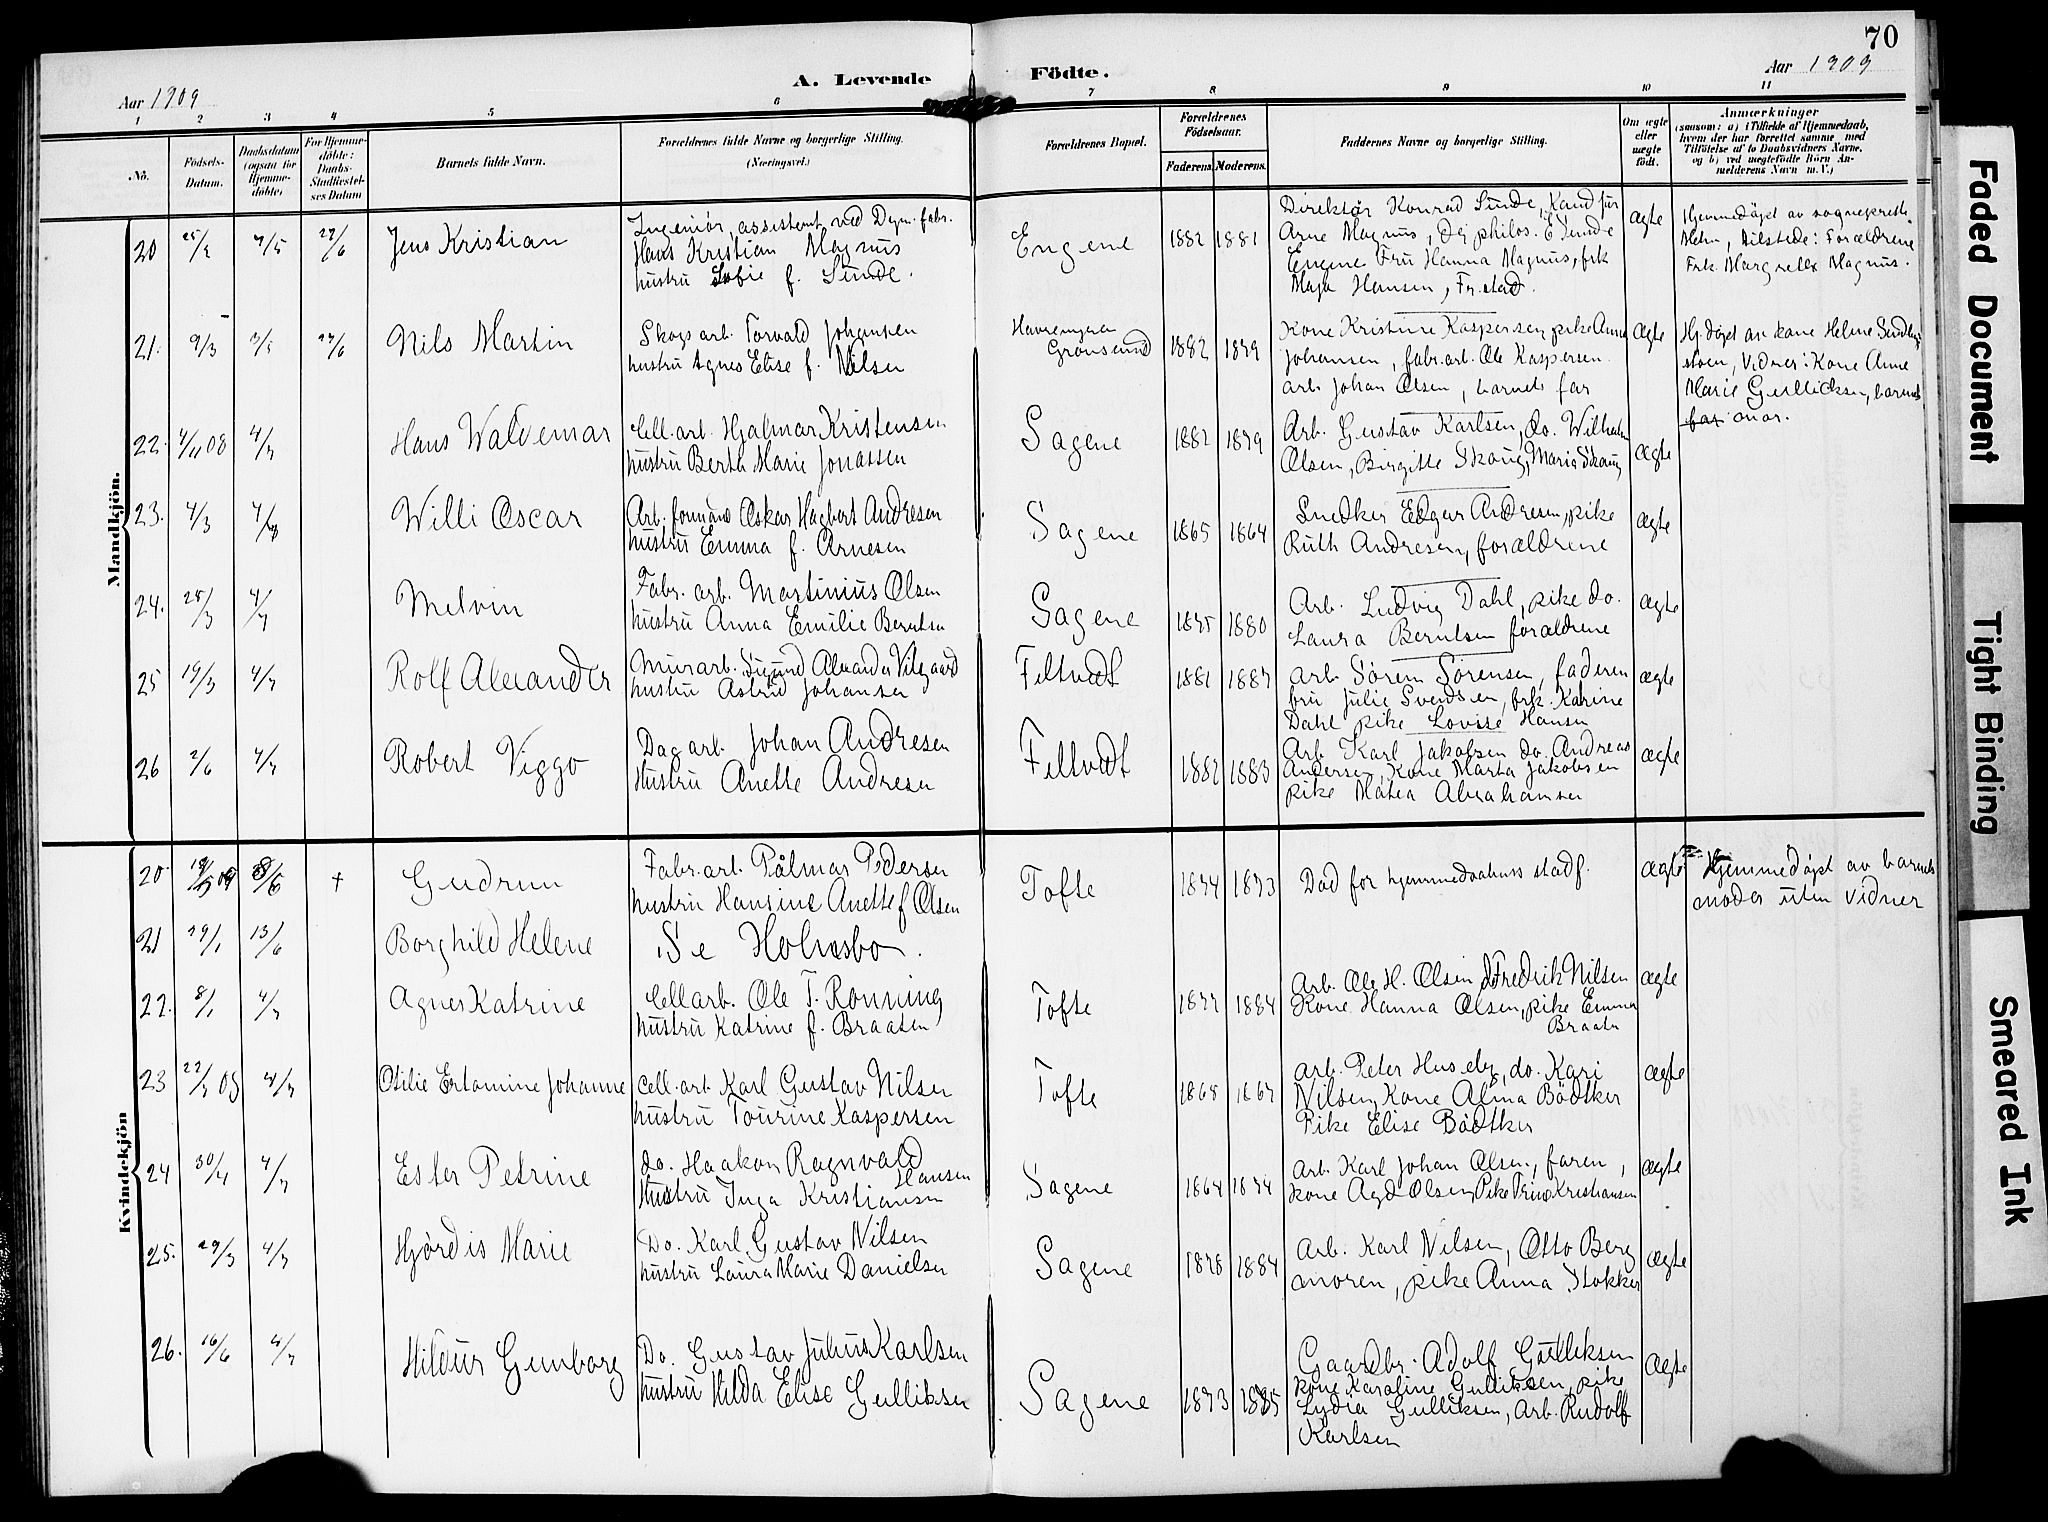 70
A. Levende Födte.
Aar 1909
Aar 1909
1 2 3 4 5 6 7 8 9 10 11
No.
Födsels-Datum.
Daabsdatum (ogsaa for Hjemme-döbte)
For Hjemme-döbte: Daabs-Stadfæstel-ses Datum
Barnets fulde Navn.
Forældrenes fulde Navne og borgerlige Stilling.
(Næringsvei.)
Forældrenes Bopæl.
Forældrenes Födselsaar.
Faderens. Moderens.
Faddernes Navne og borgerlige Stilling.
Om ægte eller uægte födt.
Anmærkninger
(saasom: a) i Tilfælde af Hjemmedaab,
hvem der har forrettet samme, med
Tilföielse af to Daabsvidners Navne.
og b) ved uægtefödte Börn An-
melderens Navn m.V.)
Mandkjön.
20 7/5 27/6 Jens Kristian
Ingeniør, assistent ved Dyn. fabr.
Hans Kristian Magnus
hustru Sofie f. Sunde.
Engene 1882 1881
Direktør Konrad Sunde, Kand jur
Arne Magnus, philos. E Sunde
Engene Fru Hanna Magnus, frk
Maja Hansen, Fr.stad.
ægte
Hjemmedøpt av sogneprest
Forældrene
Frk. Magnus.
21. 9/3 27/6 Nils Martin
Skogsarb. Torvald Johansen
hustru Agnes Elise f. Nilsen
Grønsund 1882 1879
Kone Kristine Kaspersen, pike Anna
Johansen, fabr.arb. Ole Kaspersen.
arb Johan Olsen, barnets far
ægte
Hj.døpt av kone Helene
Vidner: Kone Anne
Marie Gulliksen, barnets
far mor.
22. 4/11 08 4/7 Hans Waldemar
Cell.arb. Hjalmar Kristensen
hustru Berth Marie Jonassen
Sagene 1882 1879
Arb. Gustav Karlsen, do. Wilhelm
Olsen, Birgitte Skaug, Maria Skaug
ægte
23. 4/3 Willi Oscar
Arb. formand Oskar Hagbart Andresen
hustru Emma f. Arnesen
Sagene 1865 1864
Snedker Edgar Andresen, pike
Ruth Andresen, forældrene
ægte
24. 25/3 4/7 Melvin
Fabr. arb. Martinius Olsen
hustru Anna Emilie Berntsen
Sagene 1875 1880
Arb. Ludvig Dahl, pike do.
Laura Berntsen forældrene
ægte
25 19/3 4/7 Rolf Alexander
Murarb. Sigurd Alexander
hustru Astrid Johansen
Filtvedt 1881 1887
Arb Sørem Sørensen, faderen
fru Julie Svendsen, frk. Katrine
Dahl pike Lovise Hansen
ægte
26 2/6 4/7 Robert Viggo
Dagarb. Johan Andresen
Hustru Anette Andresen
Filtvedt 1882 1883
Arb. Karl Jakobsen do. Andreas
Andersen, Kone Marta Jakobsen
pike Matea Abrahamsen
ægte
Kvindekjön
20. + Gudrun
Fabr.arb. Pålmar Pedersen
hustru Hansine Anette f Olsen
Tofte 1874 1873
Død før hjemmedaabens stadf.
ægte
Hjemmedøpt av barnets
moder uten vidner
21 29/1 13/6 Borghild Helene
Se Holmsbo.
22. 8/1 4/7 Agnes Katrine
Cellarb. Ole T. Rønning
hustru Katrine f. Braaten
Tofte 1877 1884
Arb. Ole H. Olsen do Fredrik Nilsen
Kone Hanna Olsen, pike Emma
Braaten
ægte
23 4/7 Otilie Ertamine Johanne
Cell.arb. Karl Gustav Nilsen
hustru Tourine Kaspersen
Tofte 1868 1867
arb. Peter Huseby, do. Kari
Nilsen, Kone Alma Bödtker
Pike Elise Bödtker
ægte
24 30/4 4/7 Ester Petrine
do. Haakon Ragnvald
Hansen
Hustru Inga Kristiansen
Sagene 1864 1874
Arb. Karl Johan Olsen, faren,
kone Olsen, Pike Kristiansen
ægte
25. 29/3 4/7 Hjørdis Marie
Do. Karl Gustav Nilsen
hustru Laura Marie Danielsen
Sagene 1878 1884
Arb. Karl Nilsen, Otto Berg
moren, pike Anna Stokker
ægte
26. 16/6 4/7 Hildur Gunborg
Do. Gustav Julius Karlsen
hustru Hilda Elise Gulliksen
Sagene 1873 1885
Gaardbr. Adolf Gulliksen
kone Karoline Gulliksen, pike
Lydia Gulliksen, Arb. Rudolf
Karlsen
ægte
Faded Document
Tight Binding
Smeared Ink